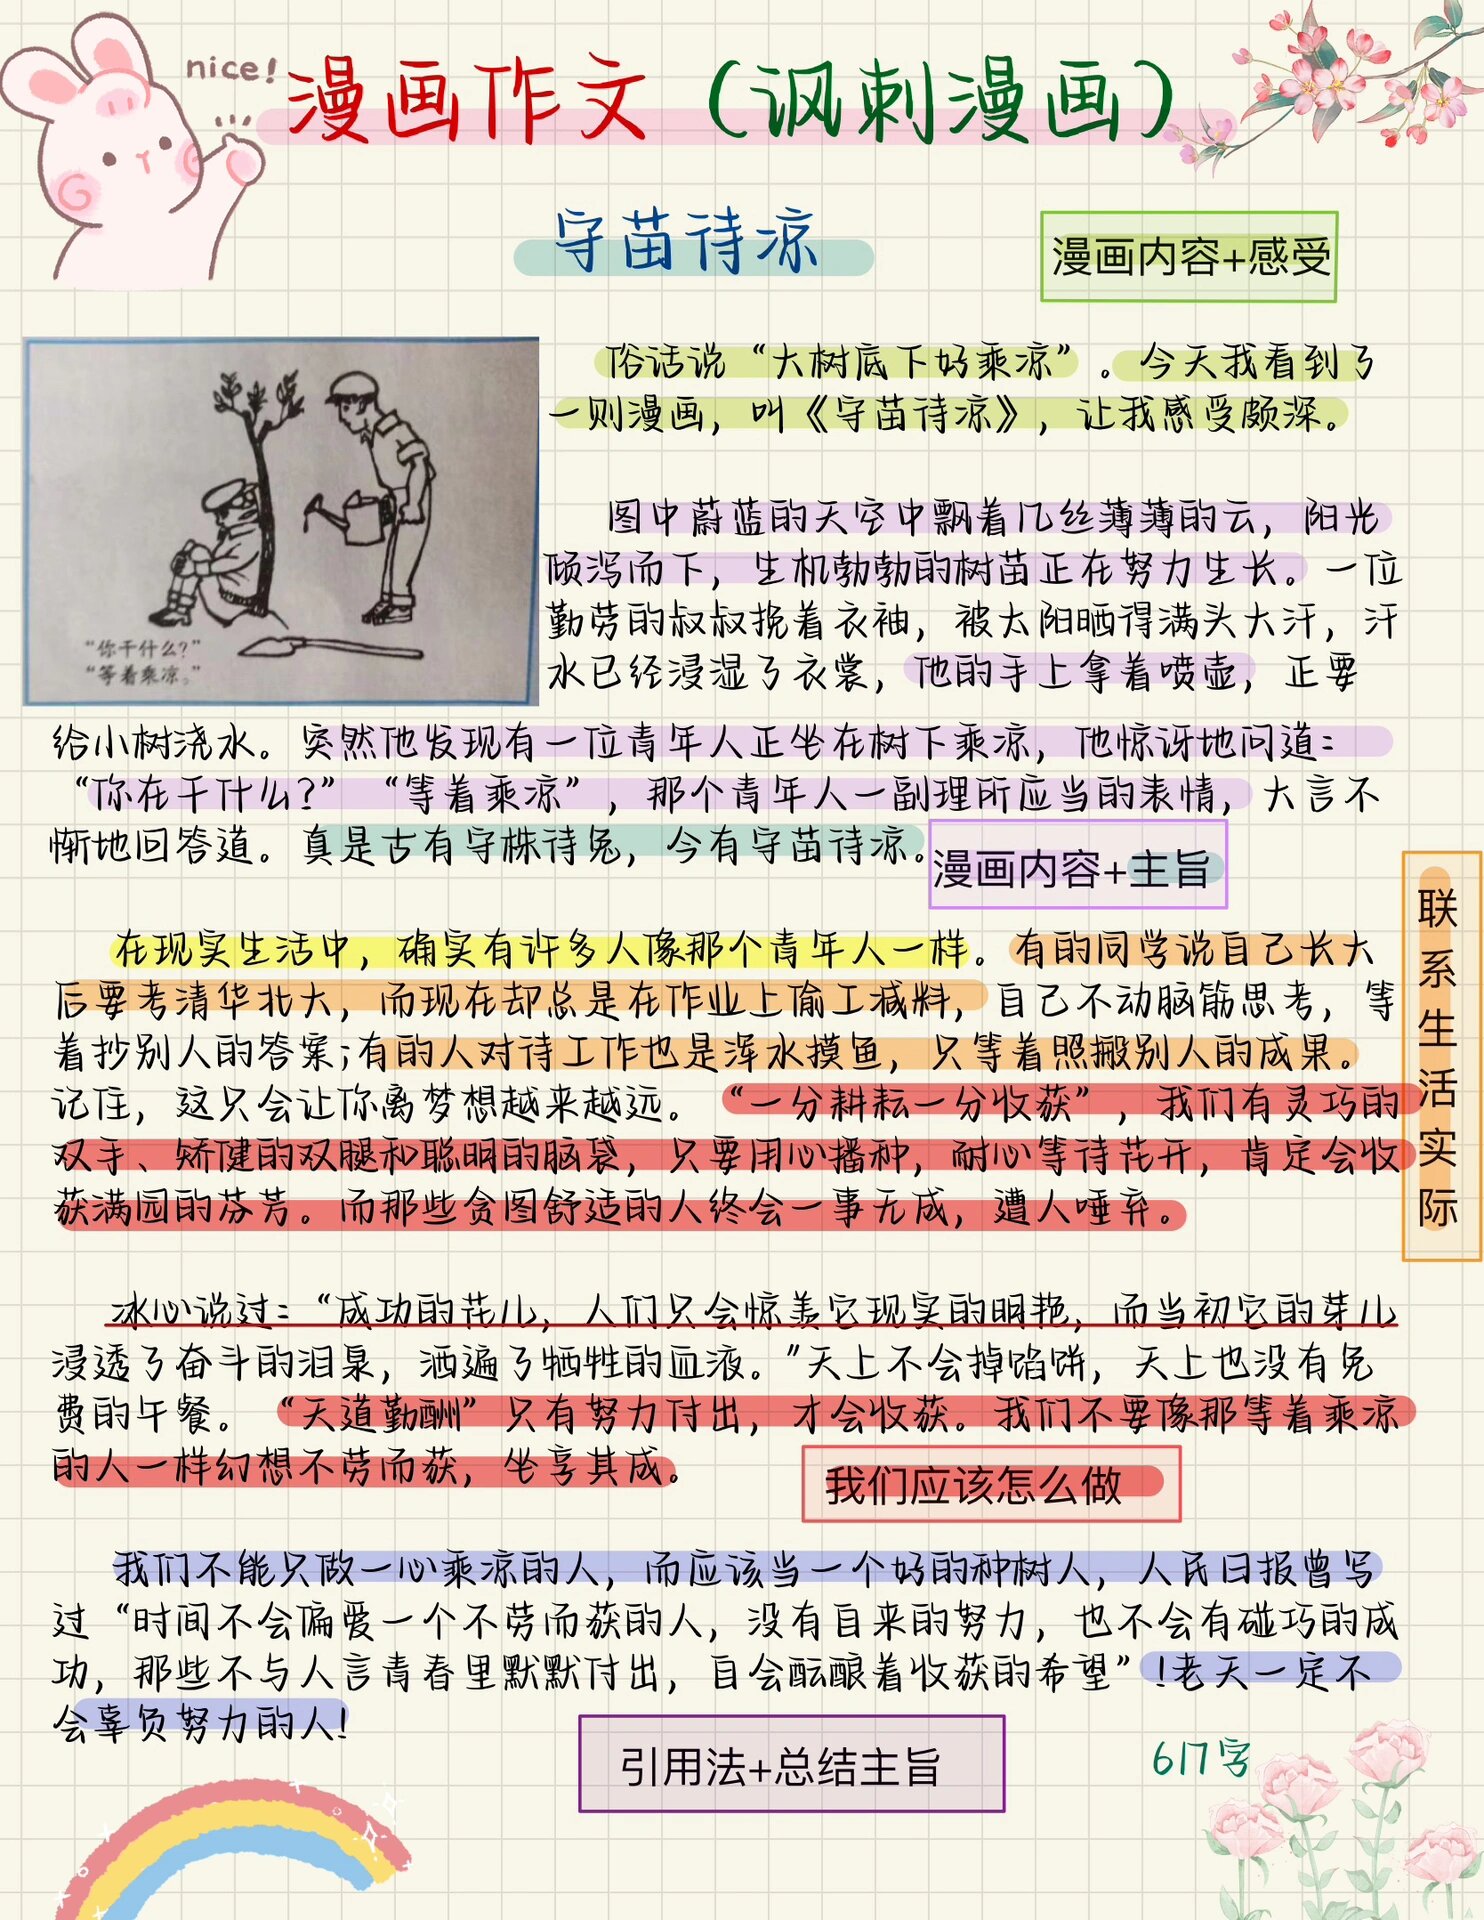 nice!
漫画作文（讽刺漫画）
守苗待凉
漫画内容+感受
俗话说“大树底下好乘凉”。今天我看到了
一则漫画，叫《守苗待凉》，让我感受颇深。
图中蔚蓝的天空中飘着几丝薄薄的云，阳光
倾泻而下，生机勃勃的树苗正在努力生长。一位
勤劳的叔叔挽着衣袖，被太阳晒得满头大汗，汗
水已经浸湿了衣裳，他的手上拿着喷壶，正要
“你干什么？”
“等着乘凉。”
给小树浇水。突然他发现有一位青年人正坐在树下乘凉，他惊讶地问道：
“你在干什么？”“等着乘凉”，那个青年人一副理所应当的表情，大言不
惭地回答道。真是古有守株待兔，今有守苗待凉。
漫画内容+主旨
在现实生活中，确实有许多人像那个青年人一样。有的同学说自己长大
后要考清华北大，而现在却总是在作业上偷工减料，自己不动脑筋思考，等
着抄别人的答案；有的人对待工作也是浑水摸鱼，只等着照搬别人的成果。
记住，这只会让你离梦想越来越远。“一分耕耘一分收获”，我们有灵巧的
双手、矫健的双腿和聪明的脑袋，只要用心播种，耐心等待花开，肯定会收
获满园的芬芳。而那些贪图舒适的人终会一事无成，遭人唾弃。
联系生活实际
冰心说过：“成功的花儿，人们只会惊羡它现实的明艳，而当初它的芽儿
浸透了奋斗的泪泉，洒遍了牺牲的血液。”天上不会掉馅饼，天上也没有免
费的午餐。“天道勤酬”只有努力付出，才会收获。我们不要像那等着乘凉
的人一样幻想不劳而获，坐享其成。
我们应该怎么做
我们不能只做一心乘凉的人，而应该当一个好的种树人，人民日报曾写
过“时间不会偏爱一个不劳而获的人，没有自来的努力，也不会有碰巧的成
功，那些不与人言青春里默默付出，自会酝酿着收获的希望”！老天一定不
会辜负努力的人！
引用法+总结主旨
617字